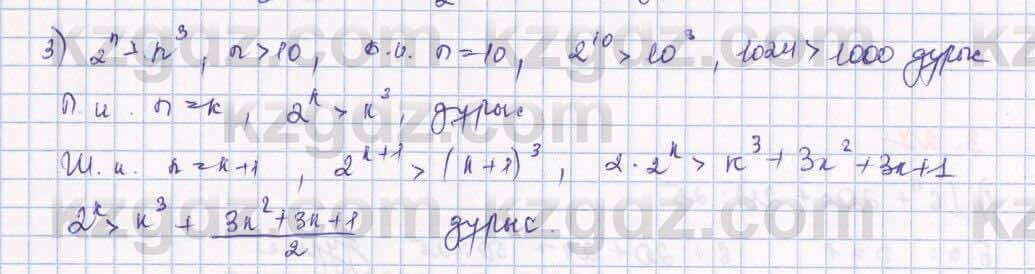 3) 2^n > n^3, n > 10, б.и. n = 10, 2^10 > 10^3, 1024 > 1000 дурыс
П.и. n = k, 2^k > k^3, дурыс
Ш.и. n = k+1, 2^(k+1) > (k+1)^3, 2·2^k > k^3 + 3k^2 + 3k + 1
2^k > k^3 + (3k^2+3k+1)/2 дурыс.
kzgdz.com